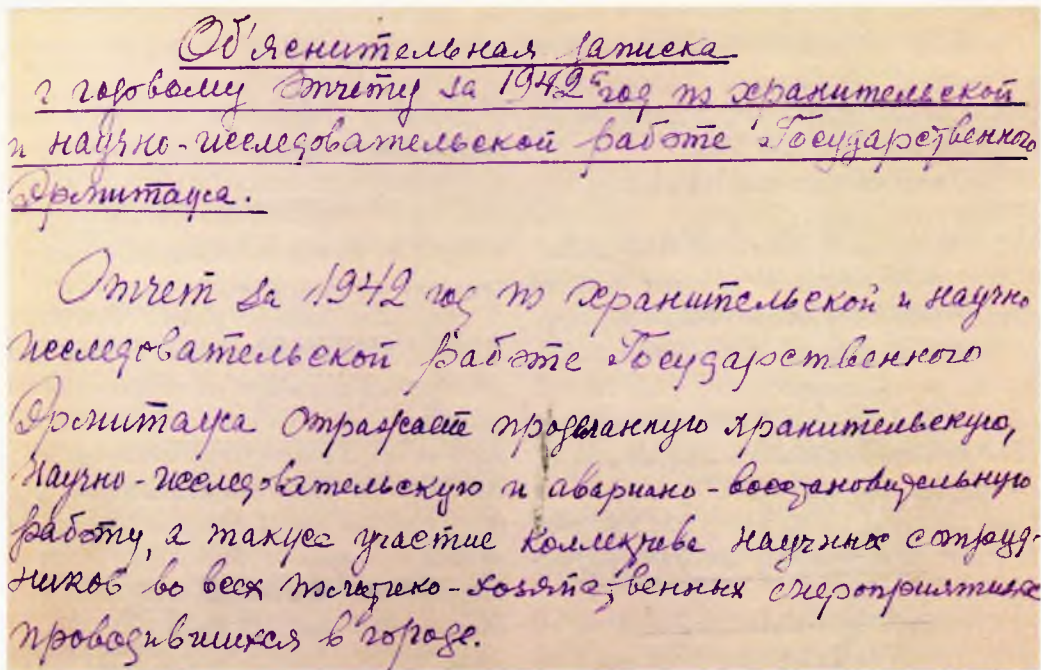 Об'яснительная записка
к годовому отчету за 1942 год по хранительской
и научно-исследовательской работе Государственного
Эрмитажа.
Отчет за 1942 год по хранительской и научно
исследовательской работе Государственного
Эрмитажа отражает проделанную хранительскую,
научно-исследовательскую и аварийно-восстановительную
работу, а также участие коллектива научных сотруд-
ников во всех политико-хозяйственных мероприятиях
проводившихся в городе.